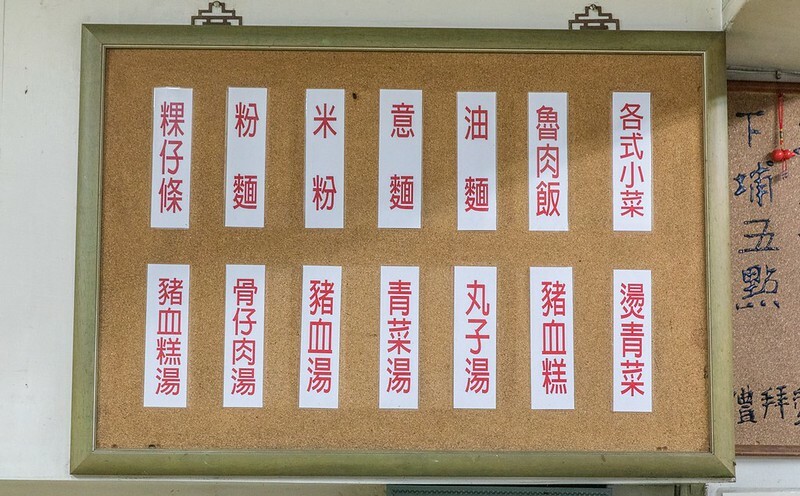 各式小菜
魯肉飯
油麵
意麵
米粉
粉麵
粿仔條
燙青菜
豬血糕
丸子湯
青菜湯
豬血湯
骨仔肉湯
豬血糕湯
下埔五點
禮拜